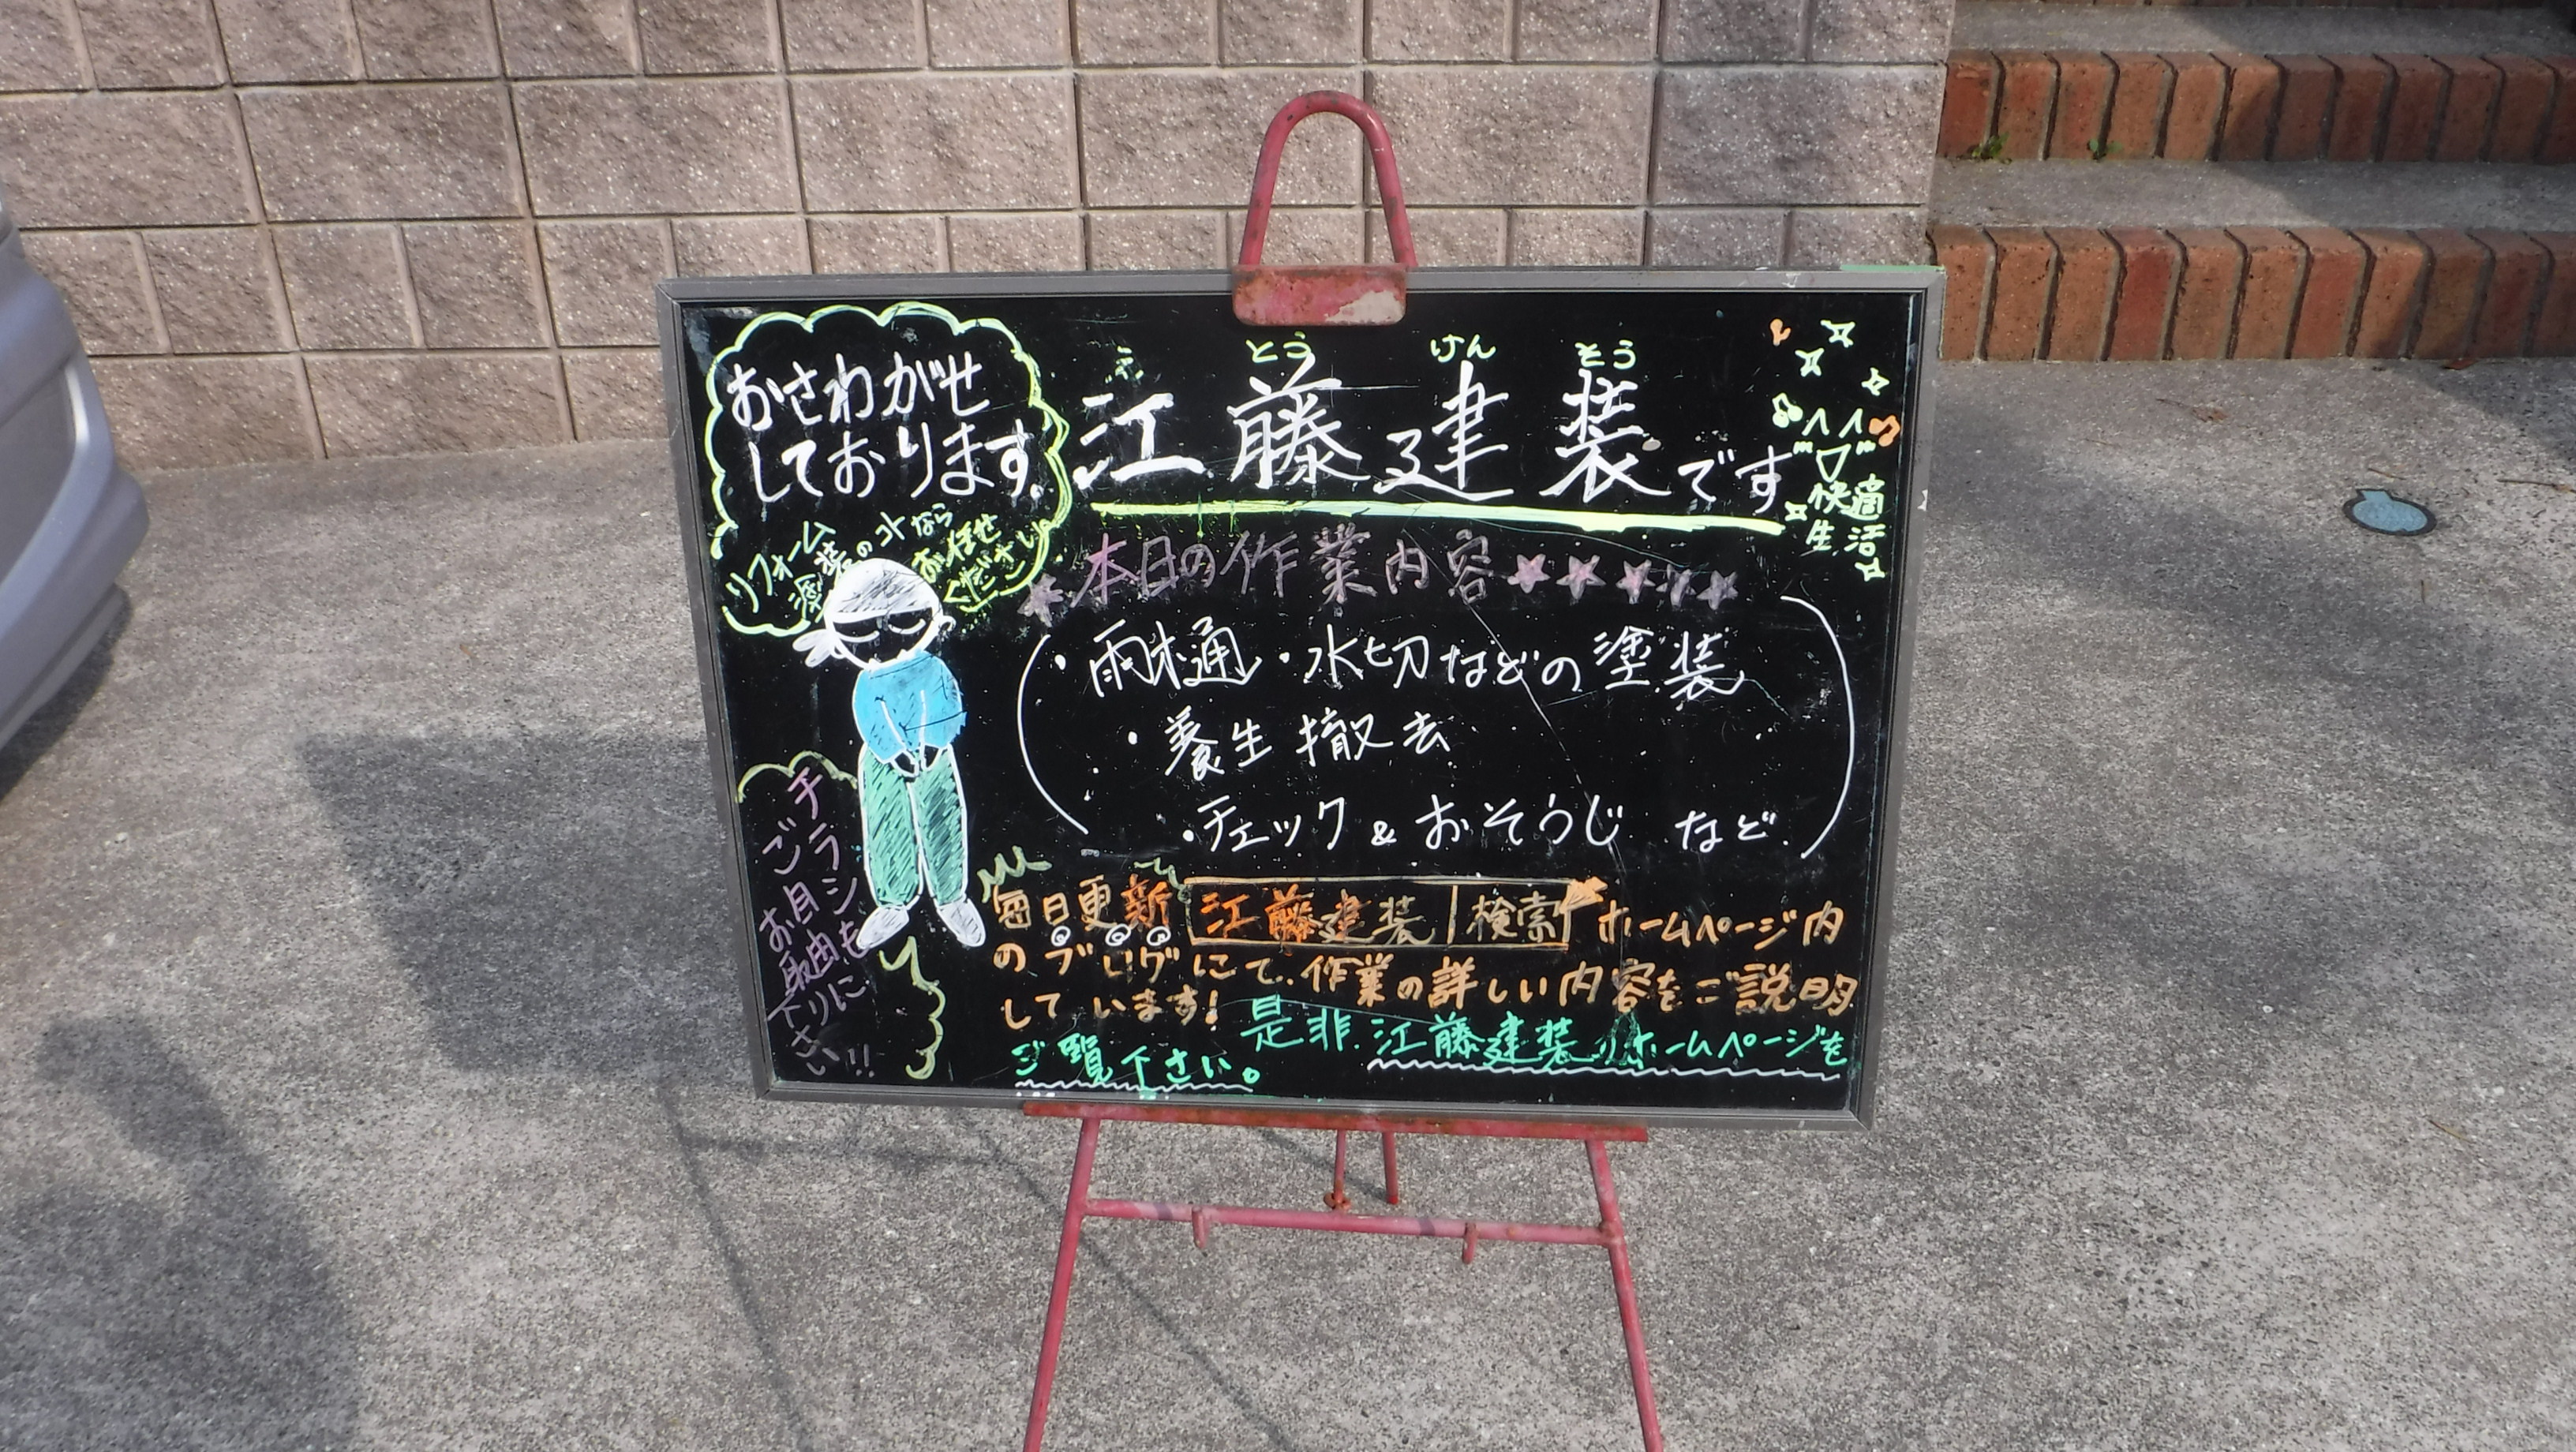 おさわがせ
しております。
リフォーム
塗装のコトなら
お任せ
ください
とう けん そう
江藤建装です
快適
生活
本日の作業内容
・雨樋・水切などの塗装
・養生撤去
・チェック&おそうじ など
チラシも
ご自由に
お取り
下さい!!
毎日更新 江藤建装 検索 ホームページ内
のブログにて、作業の詳しい内容をご説明
しています!
是非、江藤建装のホームページを
ご覧下さい。